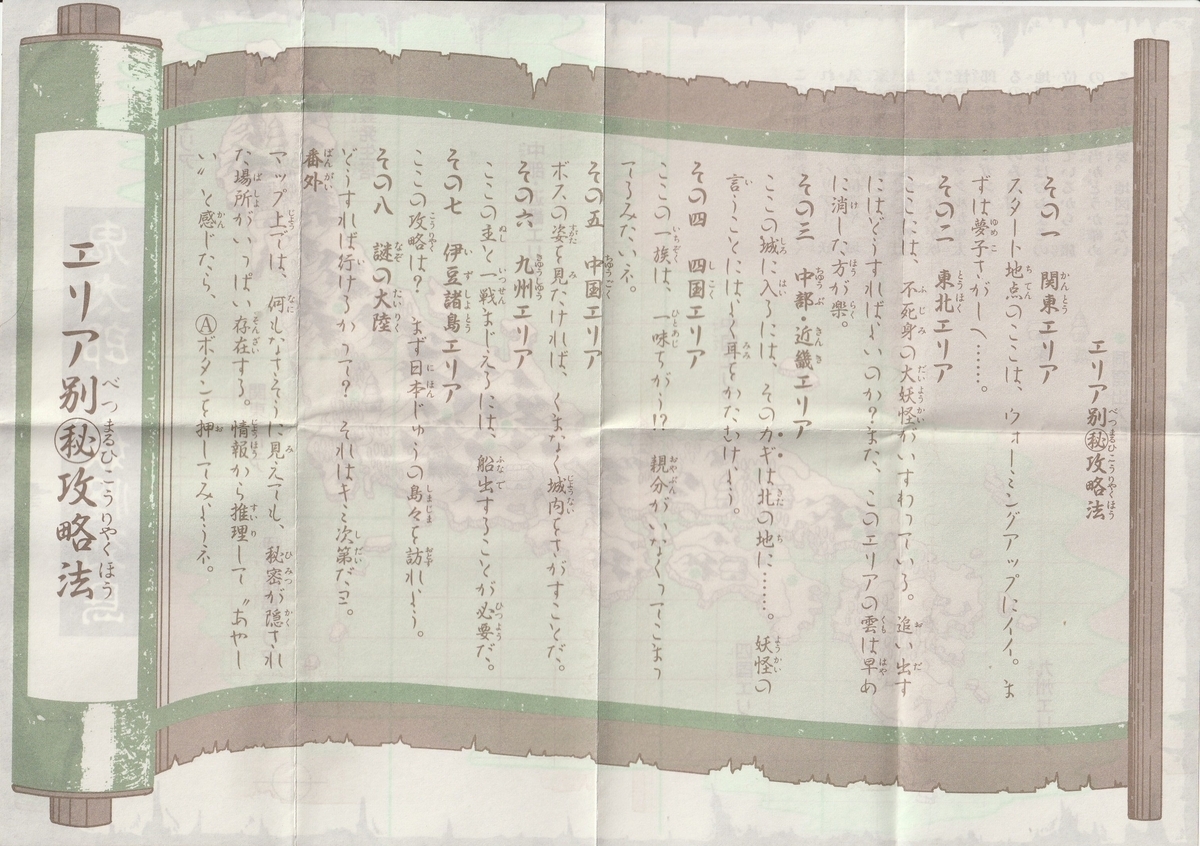 エリア別㊙攻略法
その一 関東エリア
スタート地点のここは、ウォーミングアップにイイ。ま
ずは夢子さがしへ……。
その二 東北エリア
ここには、不死身の大妖怪がいすわっている。追い出す
にはどうすればよいのか?また、このエリアの雲は早め
に消した方が楽。
その三 中部・近畿エリア
ここの城に入るには、そのカギは北の地に……。妖怪の
言うことにはよく耳をかたむけよう。
その四 四国エリア
ここの一族は、一味ちがう!? 親分がいなくってこまっ
てるみたいネ。
その五 中国エリア
ボスの姿を見たければ、くまなく城内をさがすことだ。
その六 九州エリア
ここの主と一戦まじえるには、船出することが必要だ。
その七 伊豆諸島エリア
ここの攻略は? まず日本じゅうの島々を訪れよう。
その八 謎の大陸
どうすれば行けるかって? それはキミ次第だヨ。
番外
マップ上では、何もなさそうに見えても、秘密が隠され
た場所がいっぱい存在する。情報から推理して〝あやし
い〟と感じたら、Ⓐボタンを押してみようネ。
エリア別㊙攻略法